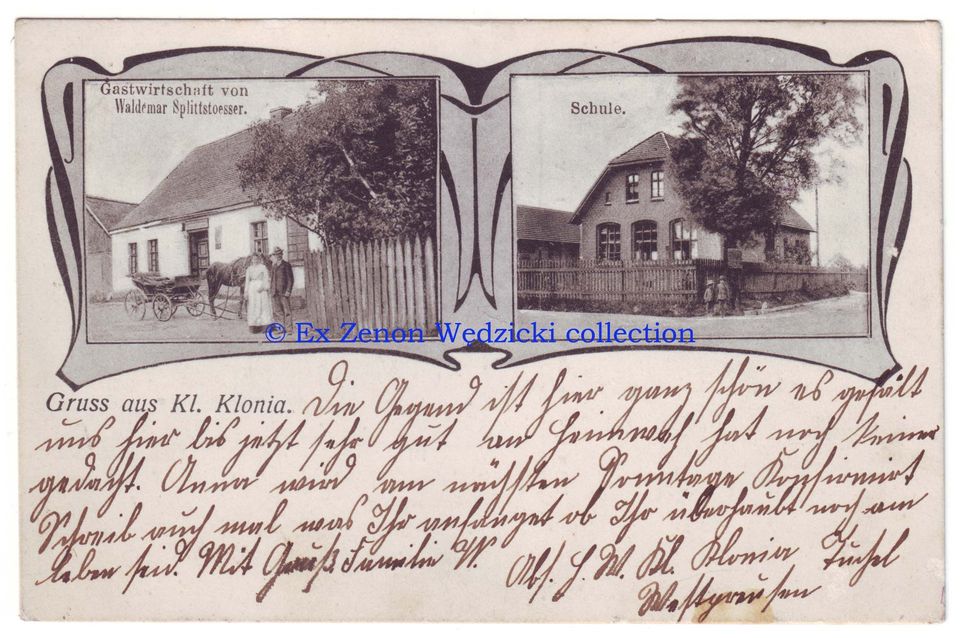 Gastwirtschaft von
Waldemar Splittstoesser.
Schule.
© Ex Zenon Wędzicki collection
Gruss aus Kl. Klonia. Die Gegend ist hier ganz schön es gefält
uns hier bis jetzt sehr gut an Heimweh hat noch keiner
gedacht. Anna wird am nächsten Sonntage Konfirmirt
Schreib auch mal was Ihr anfanget ob Ihr überhaubt noch am
leben seid. Mit Gruß Familie W.
Abs. H. W. Kl. Klonia Tuchel
Westpreusen